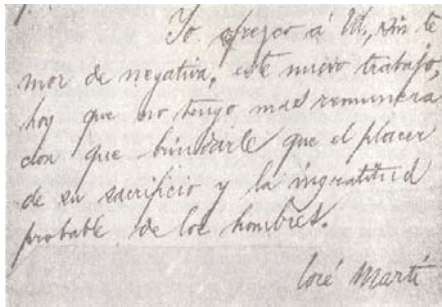 Yo ofrezco á Ud, sin te
mor de negativa, este nuevo trabajo,
hoy que no tengo mas remunera
cion que brindarle que el placer
de su sacrificio y la ingratitud
probable de los hombres.
José Martí